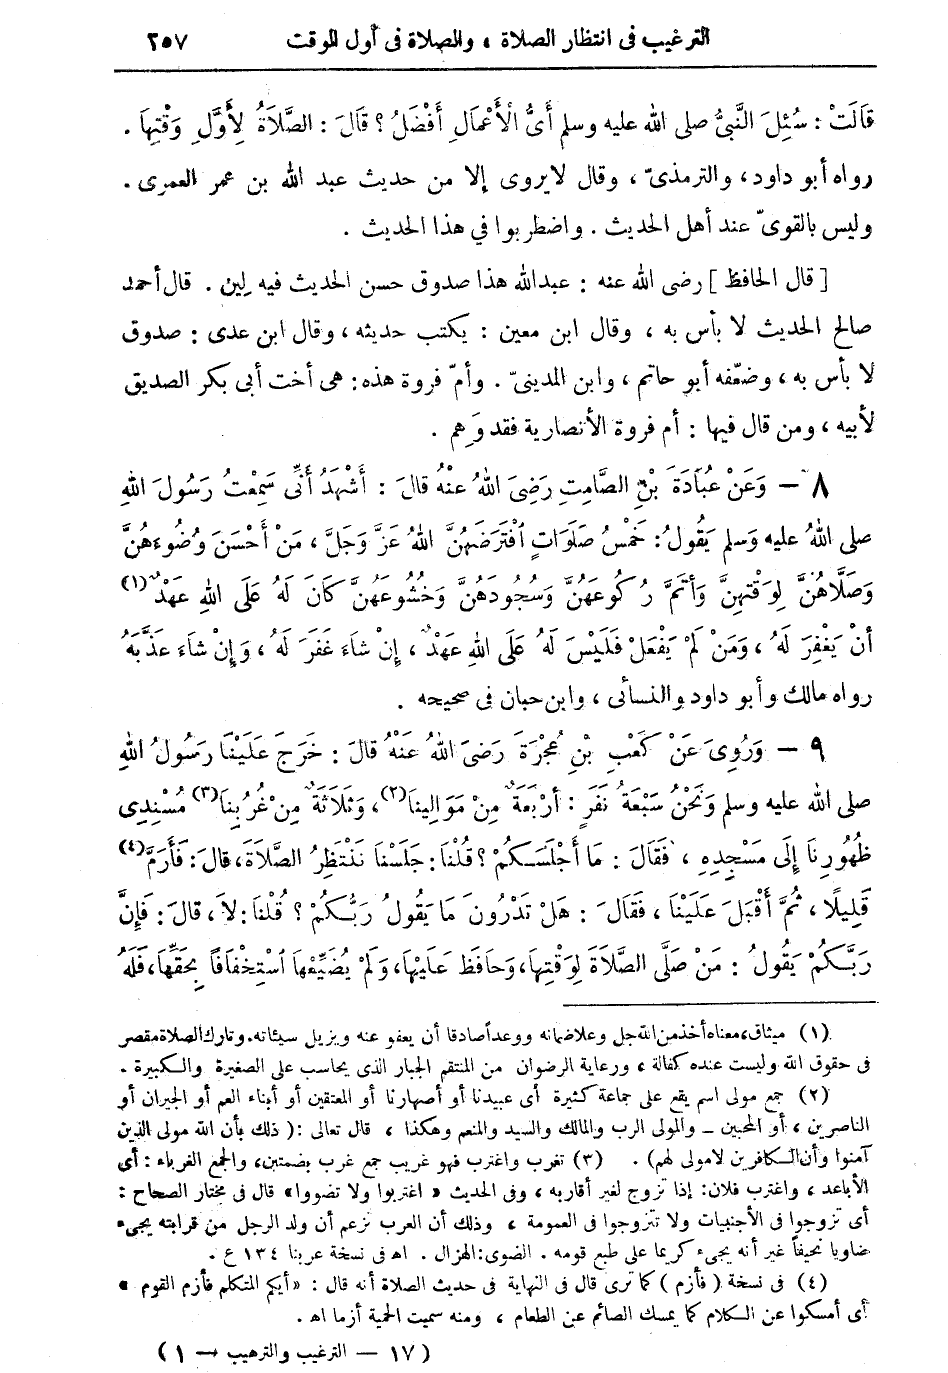 الترغيب فى انتظار الصلاة ، والصلاة فى أول الوقت ٢٥٧
قَالَتْ : سُئِلَ النَّبِىُّ صلى الله عليه وسلم أَىُّ الْأَعْمَالِ أَفْضَلُ ؟ قَالَ : الصَّلَاةُ لِأَوَّلِ وَقْتِهَا .
رواه أبو داود، والترمذىّ ، وقال لايروى إلا من حديث عبد الله بن عمر العمرى .
وليس بالقوىّ عند أهل الحديث . واضطربوا في هذا الحديث .
[ قال الحافظ ] رضى الله عنه : عبدالله هذا صدوق حسن الحديث فيه لِين . قال أحمد
صالح الحديث لا بأس به ، وقال ابن معين : يكتب حديثه ، وقال ابن عدى : صدوق
لا بأس به ، وضعّفه أبو حاتم ، وابن المدينىّ . وأمّ فروة هذه : هى أخت أبى بكر الصديق
لأبيه ، ومن قال فيها : أم فروة الأنصارية فقد وَهِم .
٨ — وَعَنْ عُبَادَةَ بْنِ الصَّامِتِ رَضِىَ اللهُ عَنْهُ قَالَ : أَشْهَدُ أَنِّى سَمِعْتُ رَسُولَ اللهِ
صلى اللهُ عليه وَسلم يَقُولُ : خَمْسُ صَلَوَاتٍ ٱفْتَرَضَهُنَّ اللهُ عَزَّ وَجَلَّ ، مَنْ أَحْسَنَ وُضُوءَهُنَّ
وَصَلَّاهُنَّ لِوَقْتِهِنَّ وَأَتَمَّ رُكُوعَهُنَّ وَسُجُودَهُنَّ وَخُشُوعَهُنَّ كَانَ لَهُ عَلَى اللهِ عَهْدٌ (١)
أَنْ يَغْفِرَ لَهُ ، وَمَنْ لَمْ يَفْعَلْ فَلَيْسَ لَهُ عَلَى اللهِ عَهْدٌ ، إِنْ شَاءَ غَفَرَ لَهُ ، وَإِنْ شَاءَ عَذَّبَهُ
رواه مالك وأبو داود والنسائى ، وابن حبان فى صحيحه .
٩ — وَرُوِىَ عَنْ كَعْبِ بْنِ عُجْرَةَ رَضِىَ اللهُ عَنْهُ قَالَ : خَرَجَ عَلَيْنَا رَسُولُ اللهِ
صلى الله عليه وسلم وَنَحْنُ سَبْعَةُ نَفَرٍ : أَرْبَعَةٌ مِنْ مَوَالِينَا (٢)، وَثَلَاثَةٌ مِنْ غُرُبِنَا (٣) مُسْنِدِى
ظُهُورِنَا إِلَى مَسْجِدِهِ ، فَقَالَ : مَا أَجْلَسَكُمْ ؟ قُلْنَا : جَلَسْنَا نَنْتَظِرُ الصَّلَاةَ ، قَالَ : فَأَرَمَّ (٤)
قَلِيلًا ، ثُمَّ أَقْبَلَ عَلَيْنَا ، فَقَالَ : هَلْ تَدْرُونَ مَا يَقُولُ رَبُّكُمْ ؟ قُلْنَا : لَا ، قَالَ : فَإِنَّ
رَبَّكُمْ يَقُولُ : مَنْ صَلَّى الصَّلَاةَ لِوَقْتِهَا، وَحَافَظَ عَلَيْهَا، وَلَمْ يُضَيِّعْهَا ٱسْتِخْفَافًا بِحَقِّهَا، فَلَهُ
(١) ميثاق، معناه أخذ من الله جل وعلا ضمانه ووعداً صادقا أن يعفو عنه ويزيل سيئاته. وتارك الصلاة مقصر
فى حقوق الله وليست عنده كفالة ، ورعاية الرضوان من المنتقم الجبار الذى يحاسب على الصغيرة والكبيرة .
(٢) جمع مولى اسم يقع على جماعة كثيرة أى عبيدنا أو أصهارنا أو المعتقين أو أبناء العم أو الجيران أو
الناصرين ، أو المحبين ــ والمولى الرب والمالك والسيد والمنعم وهكذا ، قال تعالى :( ذلك بأن الله مولى الذين
آمنوا وأن الكافرين لامولى لهم) . (٣) تغرب واغترب فهو غريب جمع غرب بضمتين، والجمع الغرباء : أى
الأباعد ، واغترب فلان: إذا تزوج لغير أقاربه ، وفى الحديث « اغتربوا ولا تضووا» قال فى مختار الصحاح :
أى تزوجوا فى الأجنبيات ولا تتزوجوا فى العمومة ، وذلك أن العرب تزعم أن ولد الرجل من قرابته يجىء
ضاويا نحيفاً غير أنه يجىء كريما على طبع قومه . الضوى:الهزال . اه فى نسخة عربنا ١٣٤ ع .
(٤) فى نسخة ( فأزم ) كما ترى قال فى النهاية فى حديث الصلاة أنه قال : «أيكم المتكلم فأزم القوم »
أى أمسكوا عن الكلام كما يمسك الصائم عن الطعام ، ومنه سميت الحمية أزما اه .
(١٧ — الترغيب والترهيب — ١ )